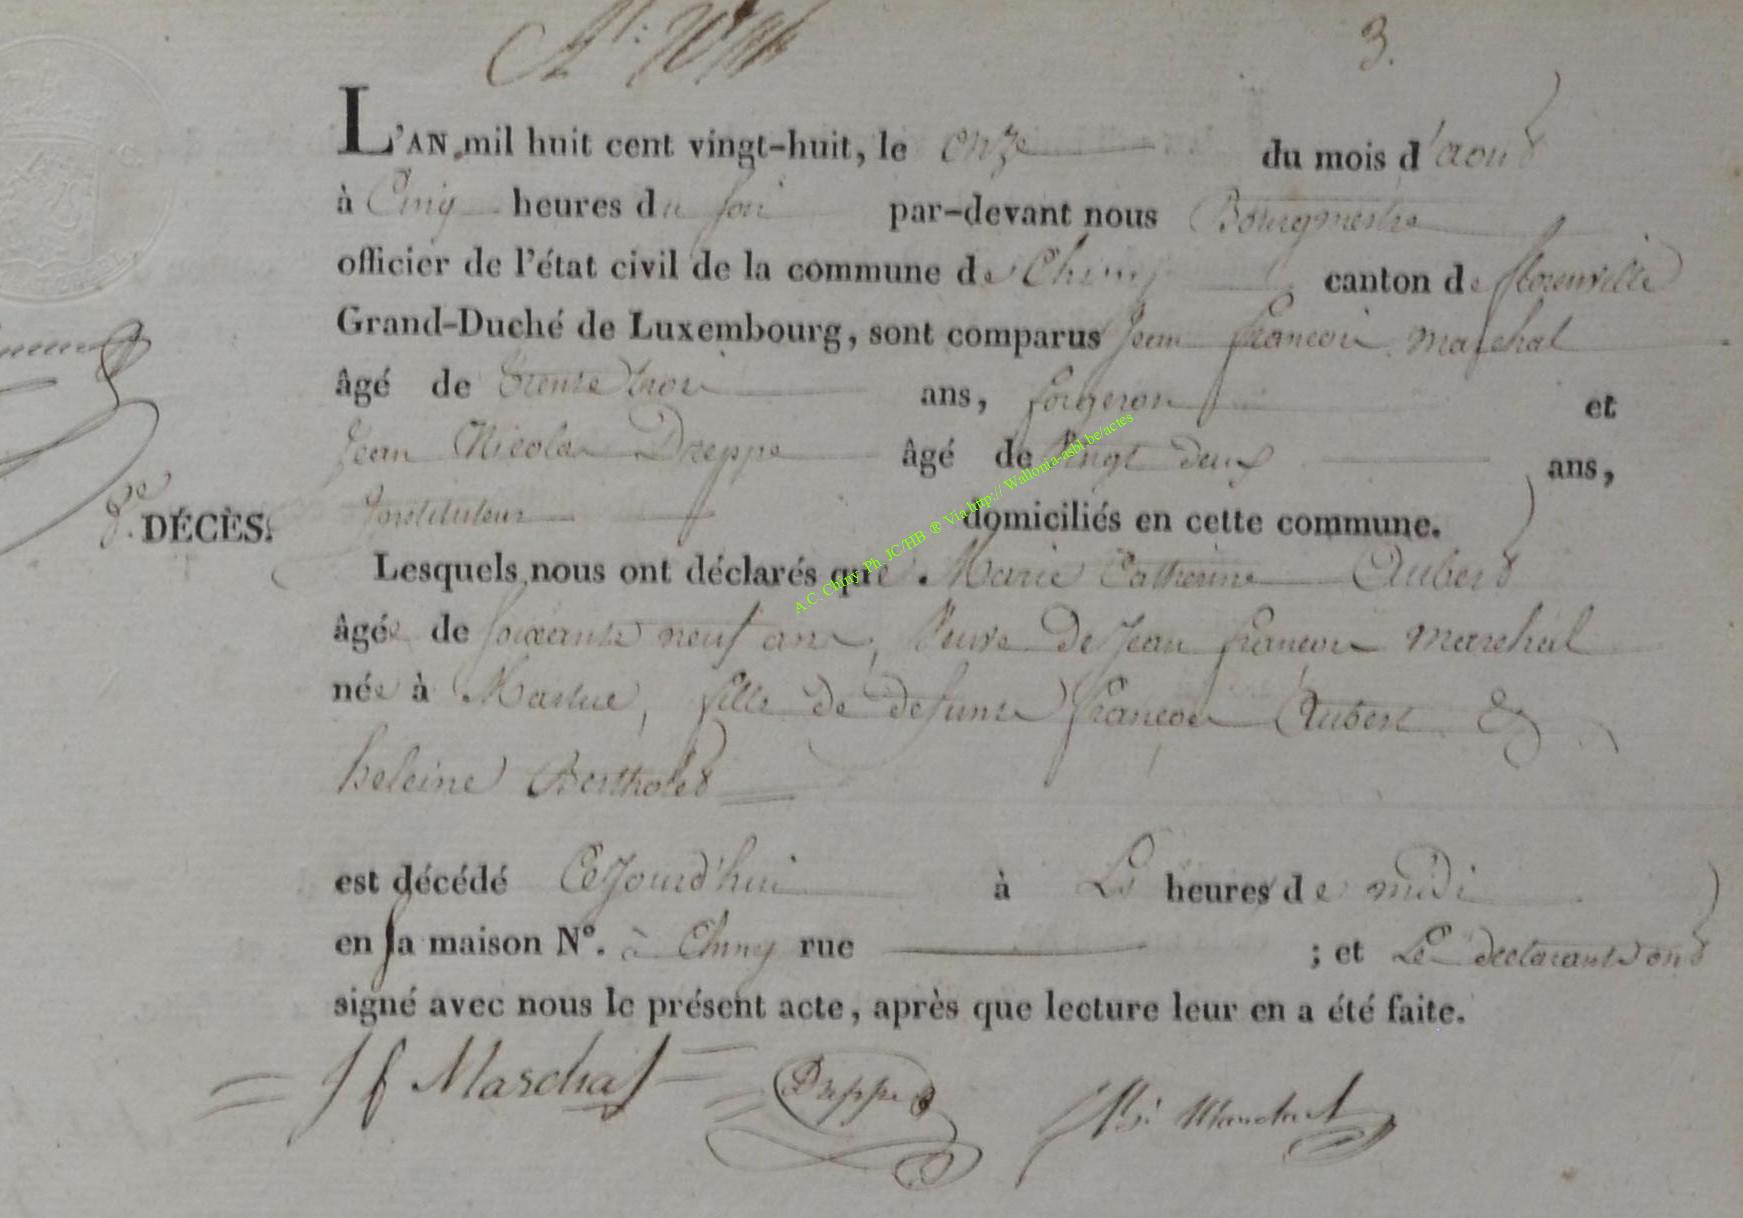 3.
L'AN mil huit cent vingt-huit, le onze du mois d'aout
à Cinq heures du soir par-devant nous Bourgmestre
officier de l'état civil de la commune de Chiny canton de florenville
Grand-Duché de Luxembourg, sont comparus Jean françois marchal
âgé de trente trois ans, forgeron et
Jean Nicolas Dreppe âgé de Vingt deux ans,
8e DÉCÈS. Instituteur domiciliés en cette commune.
Lesquels nous ont déclarés que Marie Catherine Aubert
âgée de soixante neuf ans, Veuve de Jean françois marchal
née à Martué, fille de defunts françois Aubert &
heleine Bertholet
est décédé Cejourd'hui à Les heures de midi
en sa maison N°. à Chiny rue ; et Les declarants ont
signé avec nous le présent acte, après que lecture leur en a été faite.
J f Marchal Dreppe Marchal
A.C. Chiny Ph. JC/HB ® Via http:// Wallonia-asbl.be/actes